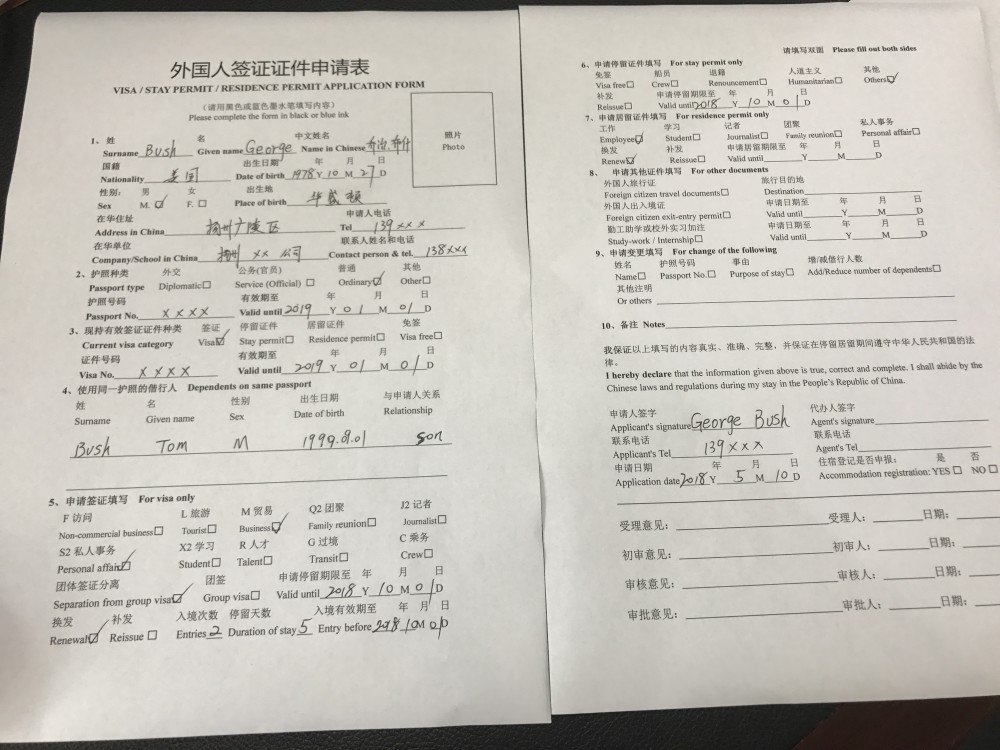 外国人签证证件申请表
VISA / STAY PERMIT / RESIDENCE PERMIT APPLICATION FORM
(请用黑色或蓝色墨水笔填写内容)
Please complete the form in black or blue ink
1、姓 名 中文姓名
Surname Bush Given name George Name in Chinese 乔治.布什
照片
Photo
国籍 出生日期 年 月 日
Nationality 美国 Date of birth 1978 Y 10 M 27 D
性别: 男 女 出生地
Sex M. ☑ F. □ Place of birth 华盛顿
在华住址 申请人电话
Address in China 扬州广陵区 Tel 139xxx
在华单位 联系人姓名和电话
Company/School in China 扬州 xx 公司 Contact person & tel. 138xxx
2、护照种类 外交 公务(官员) 普通 其他
Passport type Diplomatic□ Service (Official) □ Ordinary☑ Other□
护照号码 有效期至 年 月 日
Passport No. xxxx Valid until 2019 Y 01 M 01 D
3、现持有效签证证件种类 签证 停留证件 居留证件 免签
Current visa category Visa☑ Stay permit□ Residence permit□ Visa free□
证件号码 有效期至 年 月 日
Visa No. xxxx Valid until 2019 Y 01 M 01 D
4、使用同一护照的偕行人 Dependents on same passport
姓 名 性别 出生日期 与申请人关系
Surname Given name Sex Date of birth Relationship
Bush Tom M 1999.01.01 son
5、申请签证填写 For visa only
F 访问 L 旅游 M 贸易 Q2 团聚 J2 记者
Non-commercial business□ Tourist□ Business☑ Family reunion□ Journalist□
S2 私人事务 X2 学习 R 人才 G 过境 C 乘务
Personal affair☑ Student□ Talent□ Transit□ Crew□
团体签证分离 团签 申请停留期限至 年 月 日
Separation from group visa☑ Group visa□ Valid until 2018 Y 10 M 01 D
换发 补发 入境次数 停留天数 入境有效期至 年 月 日
Renewal☑ Reissue □ Entries 2 Duration of stay 5 Entry before 2018 10M 01D
请填写双面 Please fill out both sides
6、申请停留证件填写 For stay permit only
免签 船员 退籍 人道主义 其他
Visa free□ Crew□ Renouncement□ Humanitarian□ Others☑
补发 申请停留期限至 年 月 日
Reissue□ Valid until 2018 Y 10 M 01 D
7、申请居留证件填写 For residence permit only
工作 学习 记者 团聚 私人事务
Employee☑ Student□ Journalist□ Family reunion□ Personal affair□
换发 补发 申请居留期限至 年 月 日
Renew☑ Reissue□ Valid until Y M D
8、 申请其他证件填写 For other documents
外国人旅行证 旅行目的地
Foreign citizen travel documents□ Destination
外国人出入境证 申请日期至 年 月 日
Foreign citizen exit-entry permit□ Valid until Y M D
勤工助学或校外实习加注 申请日期至 年 月 日
Study-work / Internship□ Valid until Y M D
9、申请变更填写 For change of the following
姓名 护照号码 事由 增/减偕行人数
Name□ Passport No.□ Purpose of stay□ Add/Reduce number of dependents□
其他注明
Or others
10、备注 Notes
我保证以上填写的内容真实、准确、完整，并保证在停留居留期间遵守中华人民共和国的法
律。
I hereby declare that the information given above is true, correct and complete. I shall abide by the
Chinese laws and regulations during my stay in the People's Republic of China.
申请人签字 代办人签字
Applicant's signature George Bush Agent's signature
联系电话 联系电话
Applicant's Tel 139xxx Agent's Tel
申请日期 年 月 日 住宿登记是否申报: 是 否
Application date 2018 Y 5 M 10 D Accommodation registration: YES □ NO □
受理意见: 受理人: 日期:
初审意见: 初审人: 日期:
审核意见: 审核人: 日期:
审批意见: 审批人: 日期: